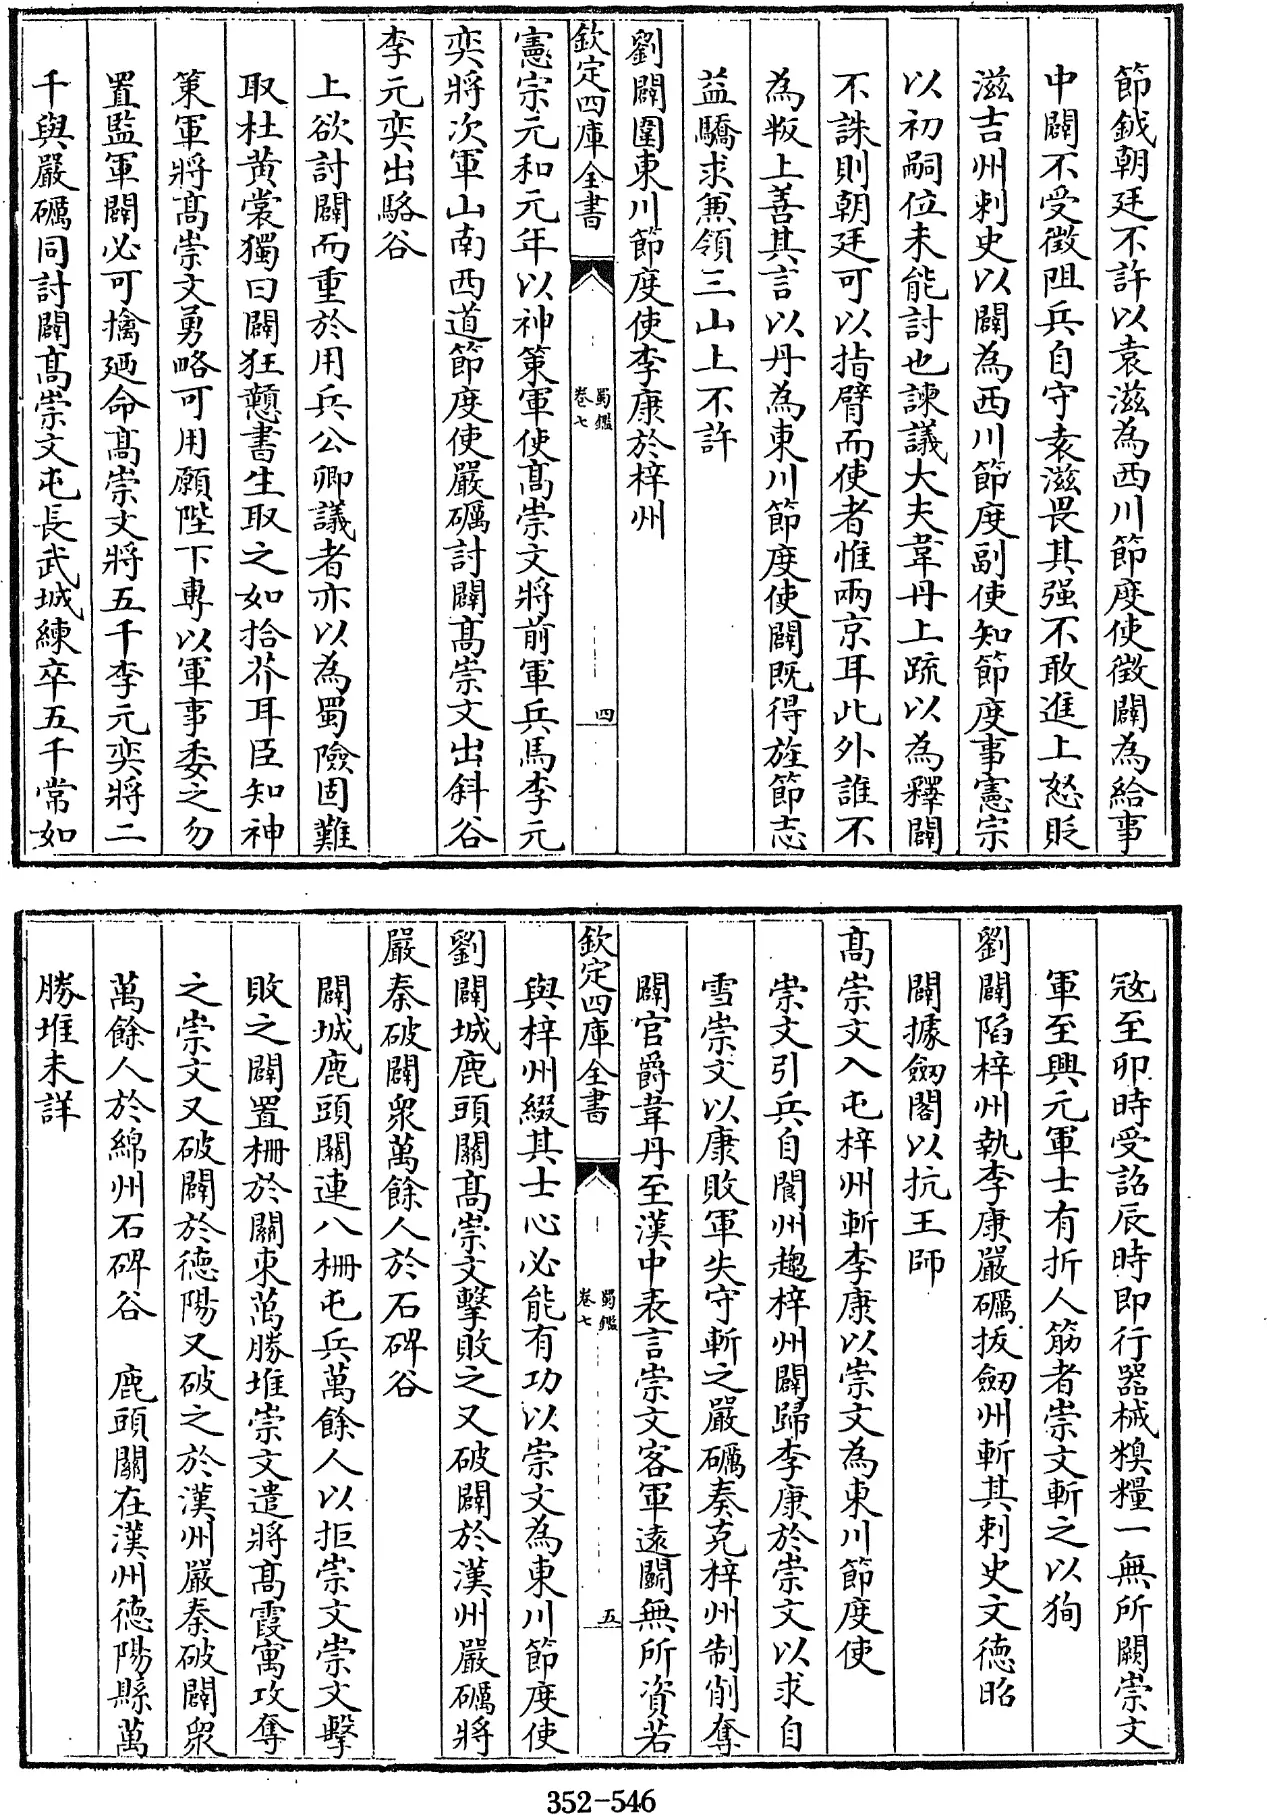 節鉞朝廷不許以袁滋為西川節度使徵闢為給事
中闢不受徵阻兵自守袁滋畏其强不敢進上怒貶
滋吉州刺史以闢為西川節度副使知節度事憲宗
以初嗣位未能討也諫議大夫韋丹上疏以為釋闢
不誅則朝廷可以指臂而使者惟兩京耳此外誰不
為叛上善其言以丹為東川節度使闢既得旌節志
益驕求兼領三山上不許
劉闢圍東川節度使李康於梓州
欽定四庫全書
蜀鑑
卷七
四
憲宗元和元年以神策軍使髙崇文將前軍兵馬李元
奕將次軍山南西道節度使嚴礪討闢髙崇文出斜谷
李元奕出駱谷
上欲討闢而重於用兵公卿議者亦以為蜀險固難
取杜黄裳獨曰闢狂戇書生取之如拾芥耳臣知神
策軍將髙崇文勇略可用願陛下專以軍事委之勿
置監軍闢必可擒廼命髙崇文將五千李元奕將二
千與嚴礪同討闢髙崇文屯長武城練卒五千常如
宼至卯時受詔辰時即行器械糗糧一無所闕崇文
軍至興元軍士有折人筯者崇文斬之以狥
劉闢陷梓州執李康嚴礪拔劒州斬其刺史文德昭
闢據劒閣以抗王師
髙崇文入屯梓州斬李康以崇文為東川節度使
崇文引兵自閬州趨梓州闢歸李康於崇文以求自
雪崇文以康敗軍失守斬之嚴礪奏克梓州制削奪
闢官爵韋丹至漢中表言崇文客軍逺鬬無所資若
欽定四庫全書
蜀鑑
卷七
五
與梓州綴其士心必能有功以崇文為東川節度使
劉闢城鹿頭關髙崇文擊敗之又破闢於漢州嚴礪將
嚴秦破闢衆萬餘人於石碑谷
闢城鹿頭關連八柵屯兵萬餘人以拒崇文崇文擊
敗之闢置柵於關東萬勝堆崇文遣將髙霞寓攻奪
之崇文又破闢於德陽又破之於漢州嚴秦破闢衆
萬餘人於綿州石碑谷　鹿頭關在漢州德陽縣萬
勝堆未詳
352-546